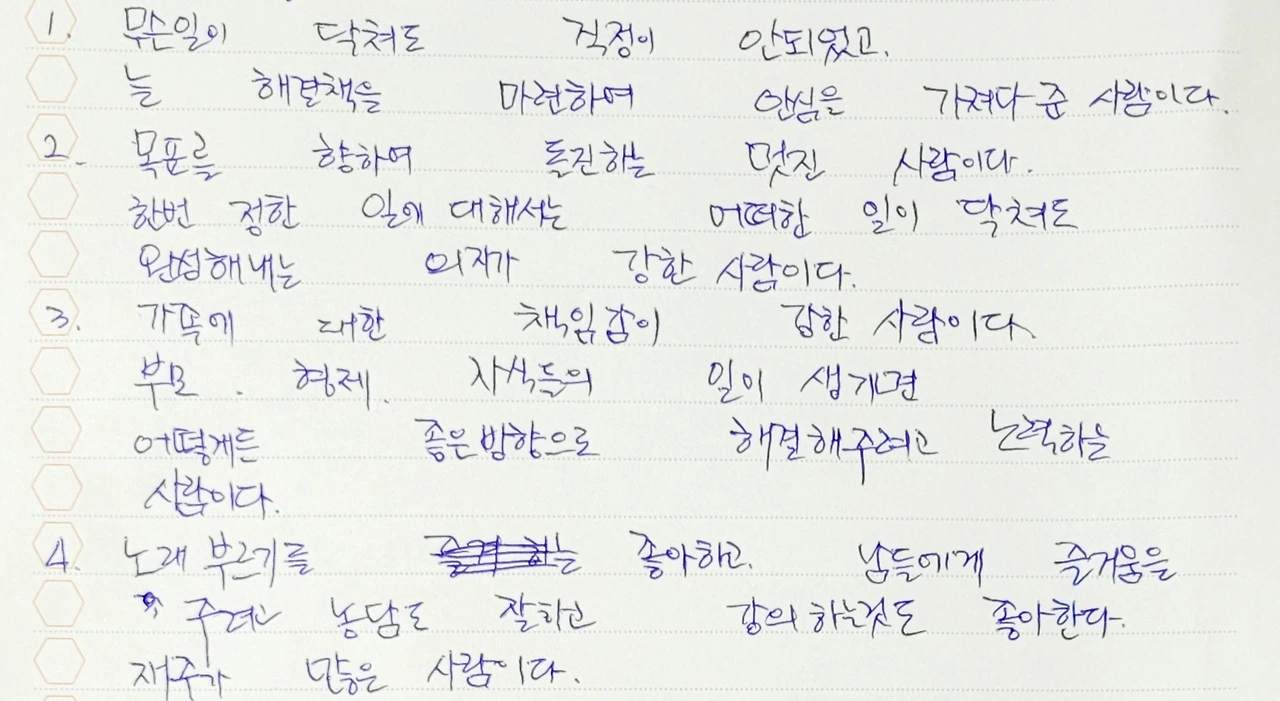 1. 무슨일이 닥쳐도 걱정이 안되었고.
늘 해결책을 마련하여 안심을 가져다 준 사람이다.
2. 목표를 향하여 돌진하는 멋진 사람이다.
한번 정한 일에 대해서는 어떠한 일이 닥쳐도
완성해내는 의지가 강한 사람이다.
3. 가족에 대한 책임감이 강한 사람이다.
부모. 형제. 자식들의 일이 생기면
어떻게든 좋은방향으로 해결해주려고 노력하는
사람이다.
4. 노래 부르기를 좋아하고. 남들에게 즐거움을
주려고 농담도 잘하고 강의 하는것도 좋아한다.
재주가 많은 사람이다.